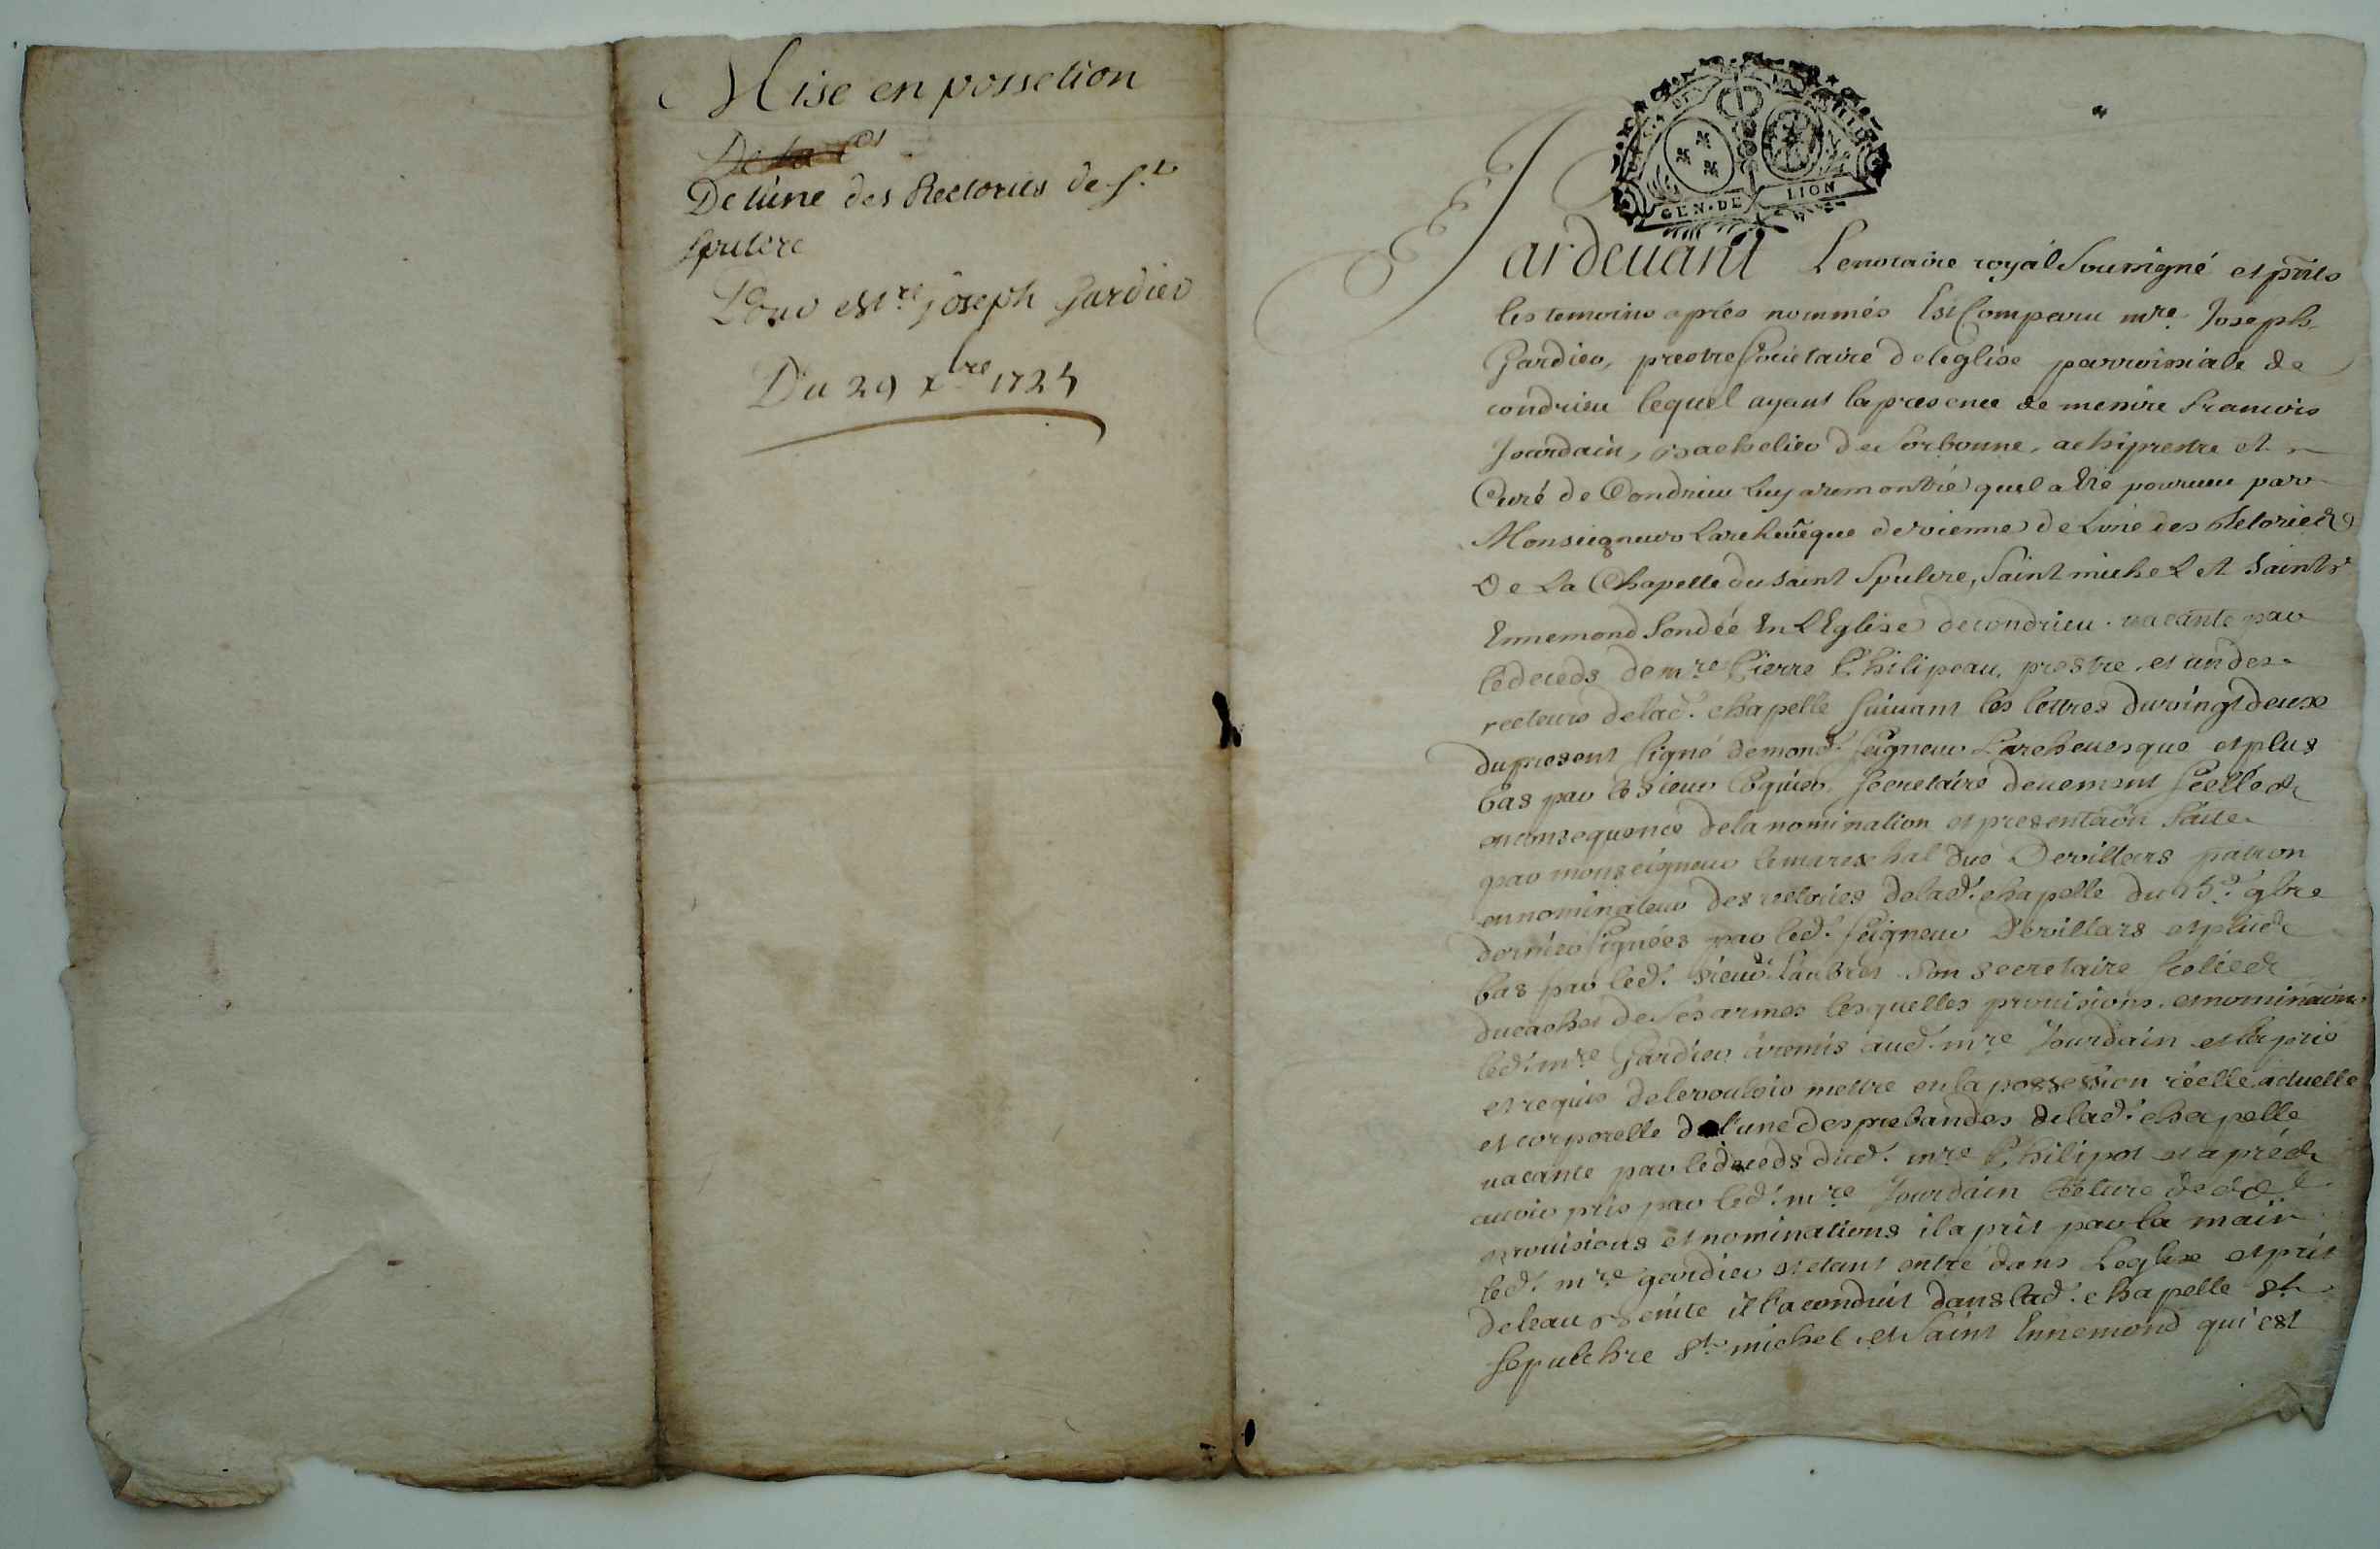 Mise en possetion
De la
De lúne des Rectories de St
Spulcre
Pour Mre joseph Gardier
Du 29 xbre 1724
GEN · DE LION
Pardeuant Le notaire royal Soussigné et pñts
les temoins apres nommés Est Comparu mre Joseph
Gardier, prestre Societaire de leglise parroissiale de
condrieu lequel ayant la presence de messire francois
Jourdain, bachelier de Sorbonne, achiprestre et
Curé de Condrieu luy a remontré quil a Eté pourueu par
Monseigneur Larcheuêque de vienne de Lune des Retories
De La Chapelle du saint Spulcre, Saint michel et saint
Ennemond fondée En L'Eglise de condrieu vacante par
le deceds de mre Pierre Philipeau, prestre, et un des
recteurs de lad. chapelle suiuant les lettres du vingt deux
du present signé de mond. seigneur Larcheuesque et plus
bas par le sieur secretaire deuement scellées
en consequence de la nomination et presentaõn faite
par monseigneur le mareschal duc De villars patron
en nominateur des rectories de lad. chapelle du 9bre
dernier signées par led. seigneur De villars et plus
bas par led. sieur son secretaire scelées
du cachet de ses armes lesquelles prouisions et nominaõn
led. mre Gardier a remis aud. mre Jourdain et la prié
et requis de le vouloir mettre en la possession réelle actuelle
et corporelle de l'une des prebandes de lad. chapelle
vacante par le deceds dud. mre Philipot et aprés
auoir pris par led. mre Jourdain lecture desd.
prouisions et nominations il a prit par la main
led. mre gardier et etant entré dans Leglise et prit
de leau benite il l'a conduit dans lad. chapelle st
sepulchre st michel et Saint Ennemond qui est